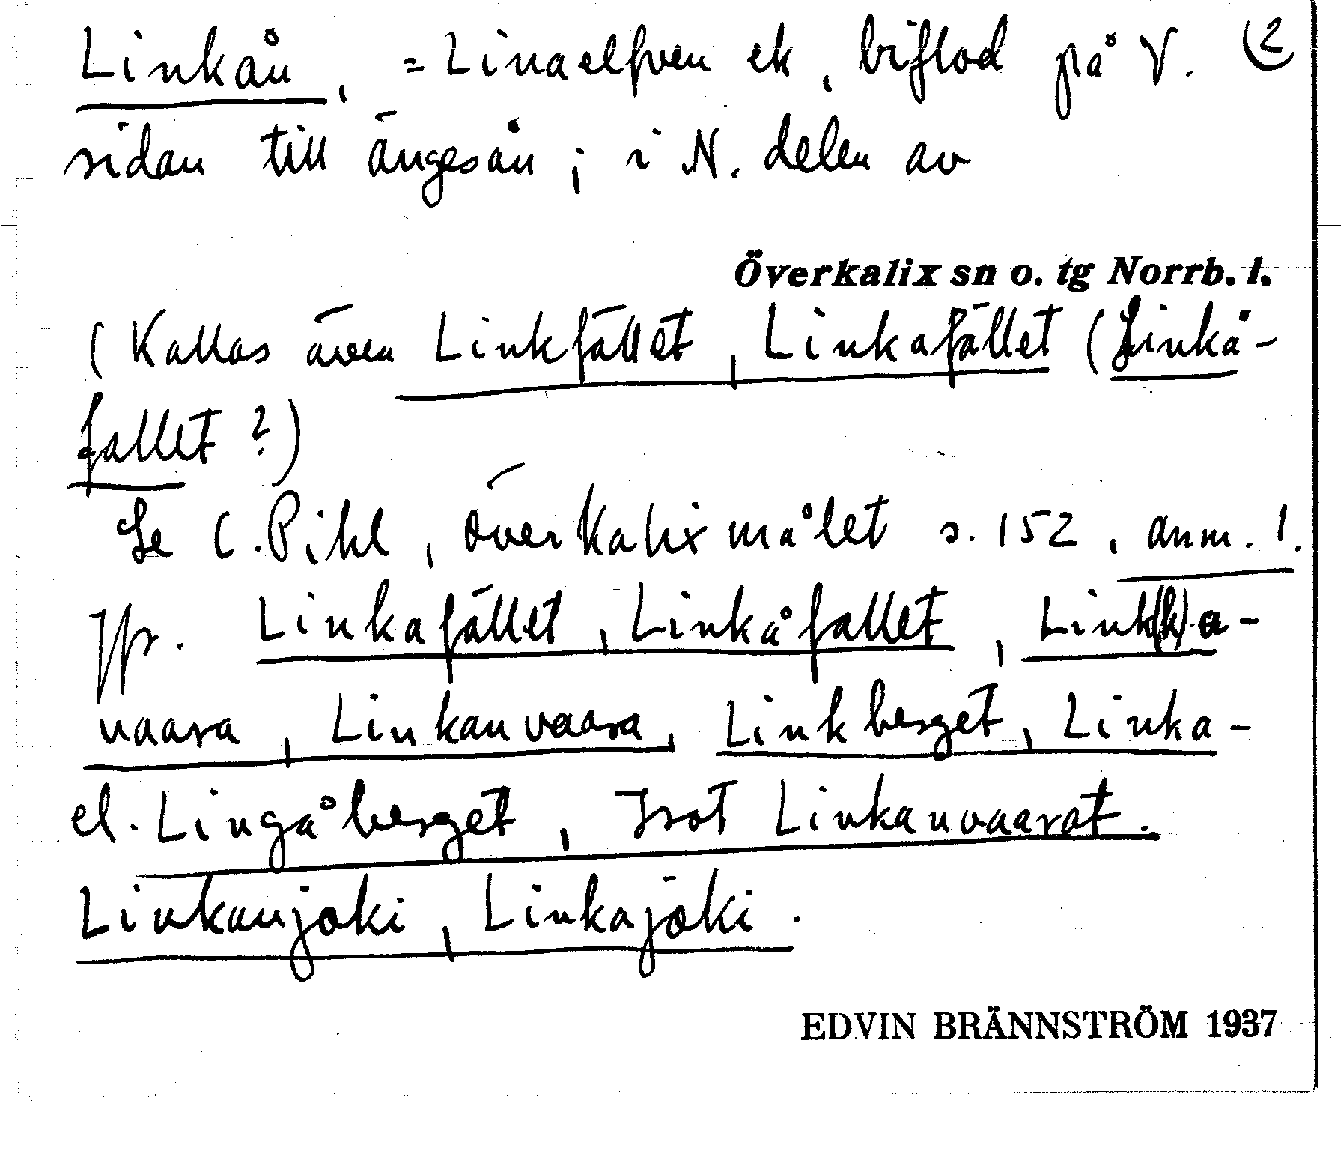 Linkån, = Linaelfven ek, biflod på V. (2
sidan till ängesån; i N. delen av
Överkalix sn o. tg Norrb. l.
(Kallas även Linkfället, Linkafället (Linkå-
fallet?)
Se C. Pihl, överkalixmålet s. 152, anm. 1.
Jfr. Linkafället, Linkåfallet, Link(k)a-
vaara, Linkanvaara, Linkberget, Linka-
el. Lingåberget, Isot Linkanvaarat.
Linkanjoki, Linkajoki.
EDVIN BRÄNNSTRÖM 1937